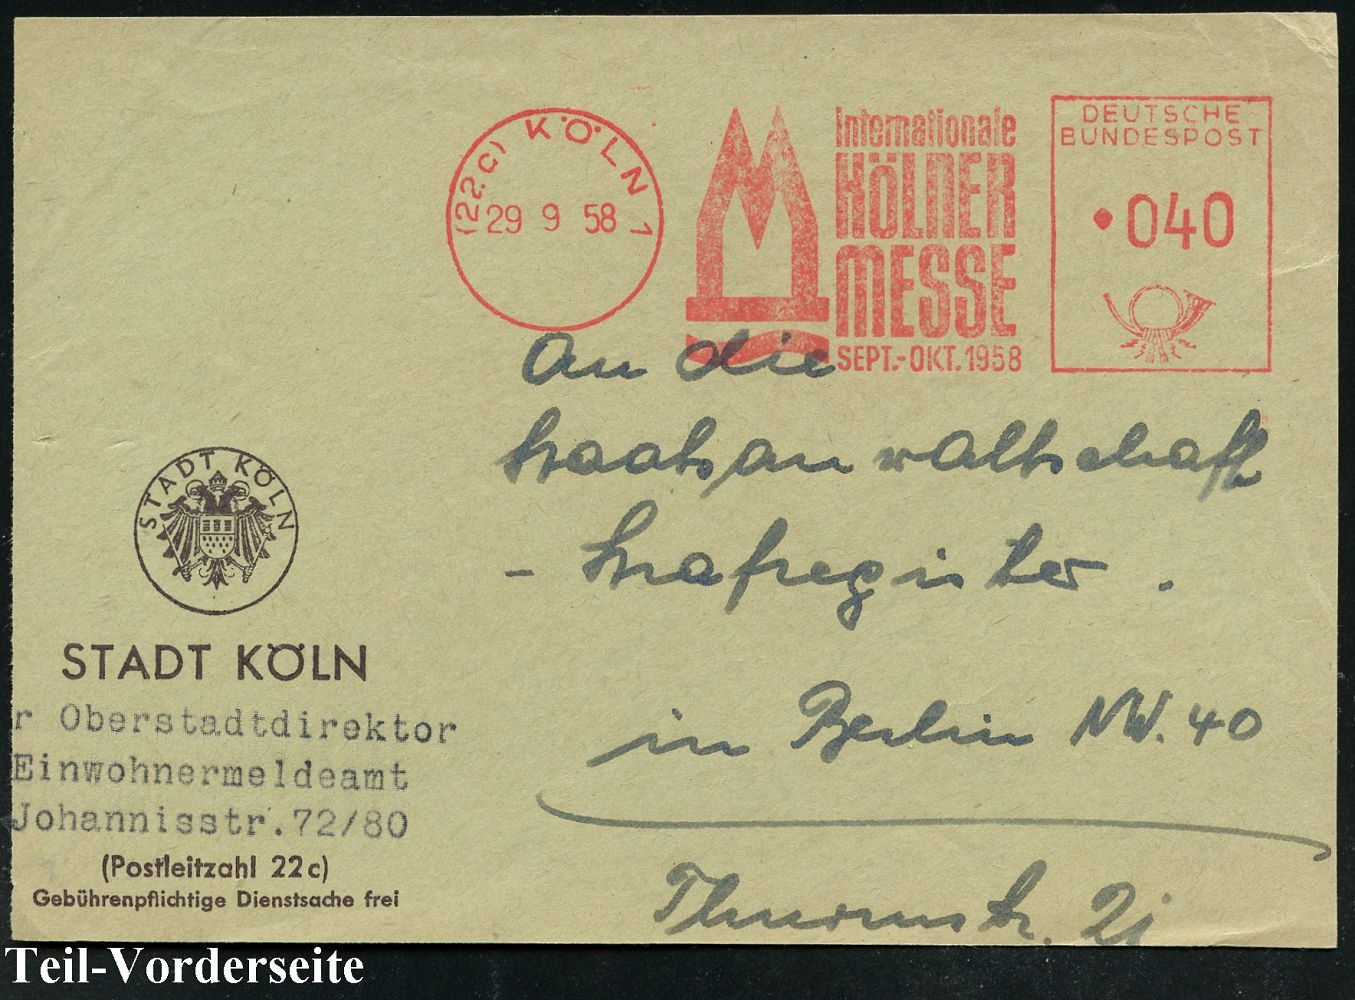 (22c) KÖLN 1
29 9 58
Internationale
KÖLNER
MESSE
SEPT.-OKT. 1958
DEUTSCHE
BUNDESPOST
040
An die
Staatsanwaltschaft
- Strafregister.
in Berlin NW. 40
Thurmstr.
STADT KÖLN
STADT KÖLN
r Oberstadtdirektor
Einwohnermeldeamt
Johannisstr.72/80
(Postleitzahl 22c)
Gebührenpflichtige Dienstsache frei
Teil-Vorderseite